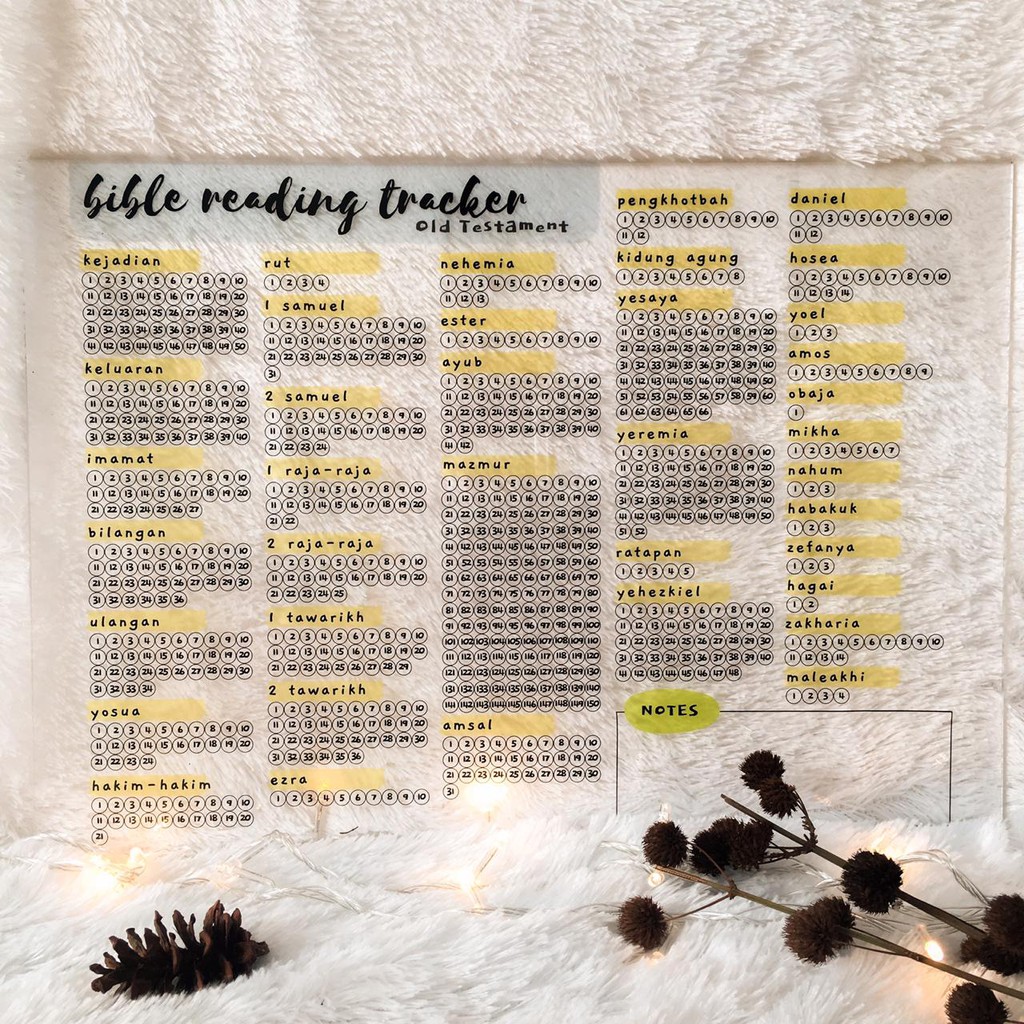 bible reading tracker
Old Testament
kejadian
1 2 3 4 5 6 7 8 9 10
11 12 13 14 15 16 17 18 19 20
21 22 23 24 25 26 27 28 29 30
31 32 33 34 35 36 37 38 39 40
41 42 43 44 45 46 47 48 49 50
keluaran
1 2 3 4 5 6 7 8 9 10
11 12 13 14 15 16 17 18 19 20
21 22 23 24 25 26 27 28 29 30
31 32 33 34 35 36 37 38 39 40
imamat
1 2 3 4 5 6 7 8 9 10
11 12 13 14 15 16 17 18 19 20
21 22 23 24 25 26 27
bilangan
1 2 3 4 5 6 7 8 9 10
11 12 13 14 15 16 17 18 19 20
21 22 23 24 25 26 27 28 29 30
31 32 33 34 35 36
ulangan
1 2 3 4 5 6 7 8 9 10
11 12 13 14 15 16 17 18 19 20
21 22 23 24 25 26 27 28 29 30
31 32 33 34
yosua
1 2 3 4 5 6 7 8 9 10
11 12 13 14 15 16 17 18 19 20
21 22 23 24
hakim-hakim
1 2 3 4 5 6 7 8 9 10
11 12 13 14 15 16 17 18 19 20
21
rut
1 2 3 4
1 samuel
1 2 3 4 5 6 7 8 9 10
11 12 13 14 15 16 17 18 19 20
21 22 23 24 25 26 27 28 29 30
31
2 samuel
1 2 3 4 5 6 7 8 9 10
11 12 13 14 15 16 17 18 19 20
21 22 23 24
1 raja-raja
1 2 3 4 5 6 7 8 9 10
11 12 13 14 15 16 17 18 19 20
21 22
2 raja-raja
1 2 3 4 5 6 7 8 9 10
11 12 13 14 15 16 17 18 19 20
21 22 23 24 25
1 tawarikh
1 2 3 4 5 6 7 8 9 10
11 12 13 14 15 16 17 18 19 20
21 22 23 24 25 26 27 28 29
2 tawarikh
1 2 3 4 5 6 7 8 9 10
11 12 13 14 15 16 17 18 19 20
21 22 23 24 25 26 27 28 29 30
31 32 33 34 35 36
ezra
1 2 3 4 5 6 7 8 9 10
nehemia
1 2 3 4 5 6 7 8 9 10
11 12 13
ester
1 2 3 4 5 6 7 8 9 10
ayub
1 2 3 4 5 6 7 8 9 10
11 12 13 14 15 16 17 18 19 20
21 22 23 24 25 26 27 28 29 30
31 32 33 34 35 36 37 38 39 40
41 42
mazmur
1 2 3 4 5 6 7 8 9 10
11 12 13 14 15 16 17 18 19 20
21 22 23 24 25 26 27 28 29 30
31 32 33 34 35 36 37 38 39 40
41 42 43 44 45 46 47 48 49 50
51 52 53 54 55 56 57 58 59 60
61 62 63 64 65 66 67 68 69 70
71 72 73 74 75 76 77 78 79 80
81 82 83 84 85 86 87 88 89 90
91 92 93 94 95 96 97 98 99 100
101 102 103 104 105 106 107 108 109 110
111 112 113 114 115 116 117 118 119 120
121 122 123 124 125 126 127 128 129 130
131 132 133 134 135 136 137 138 139 140
141 142 143 144 145 146 147 148 149 150
amsal
1 2 3 4 5 6 7 8 9 10
11 12 13 14 15 16 17 18 19 20
21 22 23 24 25 26 27 28 29 30
31
pengkhotbah
1 2 3 4 5 6 7 8 9 10
11 12
kidung agung
1 2 3 4 5 6 7 8
yesaya
1 2 3 4 5 6 7 8 9 10
11 12 13 14 15 16 17 18 19 20
21 22 23 24 25 26 27 28 29 30
31 32 33 34 35 36 37 38 39 40
41 42 43 44 45 46 47 48 49 50
51 52 53 54 55 56 57 58 59 60
61 62 63 64 65 66
yeremia
1 2 3 4 5 6 7 8 9 10
11 12 13 14 15 16 17 18 19 20
21 22 23 24 25 26 27 28 29 30
31 32 33 34 35 36 37 38 39 40
41 42 43 44 45 46 47 48 49 50
51 52
ratapan
1 2 3 4 5
yehezkiel
1 2 3 4 5 6 7 8 9 10
11 12 13 14 15 16 17 18 19 20
21 22 23 24 25 26 27 28 29 30
31 32 33 34 35 36 37 38 39 40
41 42 43 44 45 46 47 48
daniel
1 2 3 4 5 6 7 8 9 10
11 12
hosea
1 2 3 4 5 6 7 8 9 10
11 12 13 14
yoel
1 2 3
amos
1 2 3 4 5 6 7 8 9
obaja
1
mikha
1 2 3 4 5 6 7
nahum
1 2 3
habakuk
1 2 3
zefanya
1 2 3
hagai
1 2
zakharia
1 2 3 4 5 6 7 8 9 10
11 12 13 14
maleakhi
1 2 3 4
NOTES